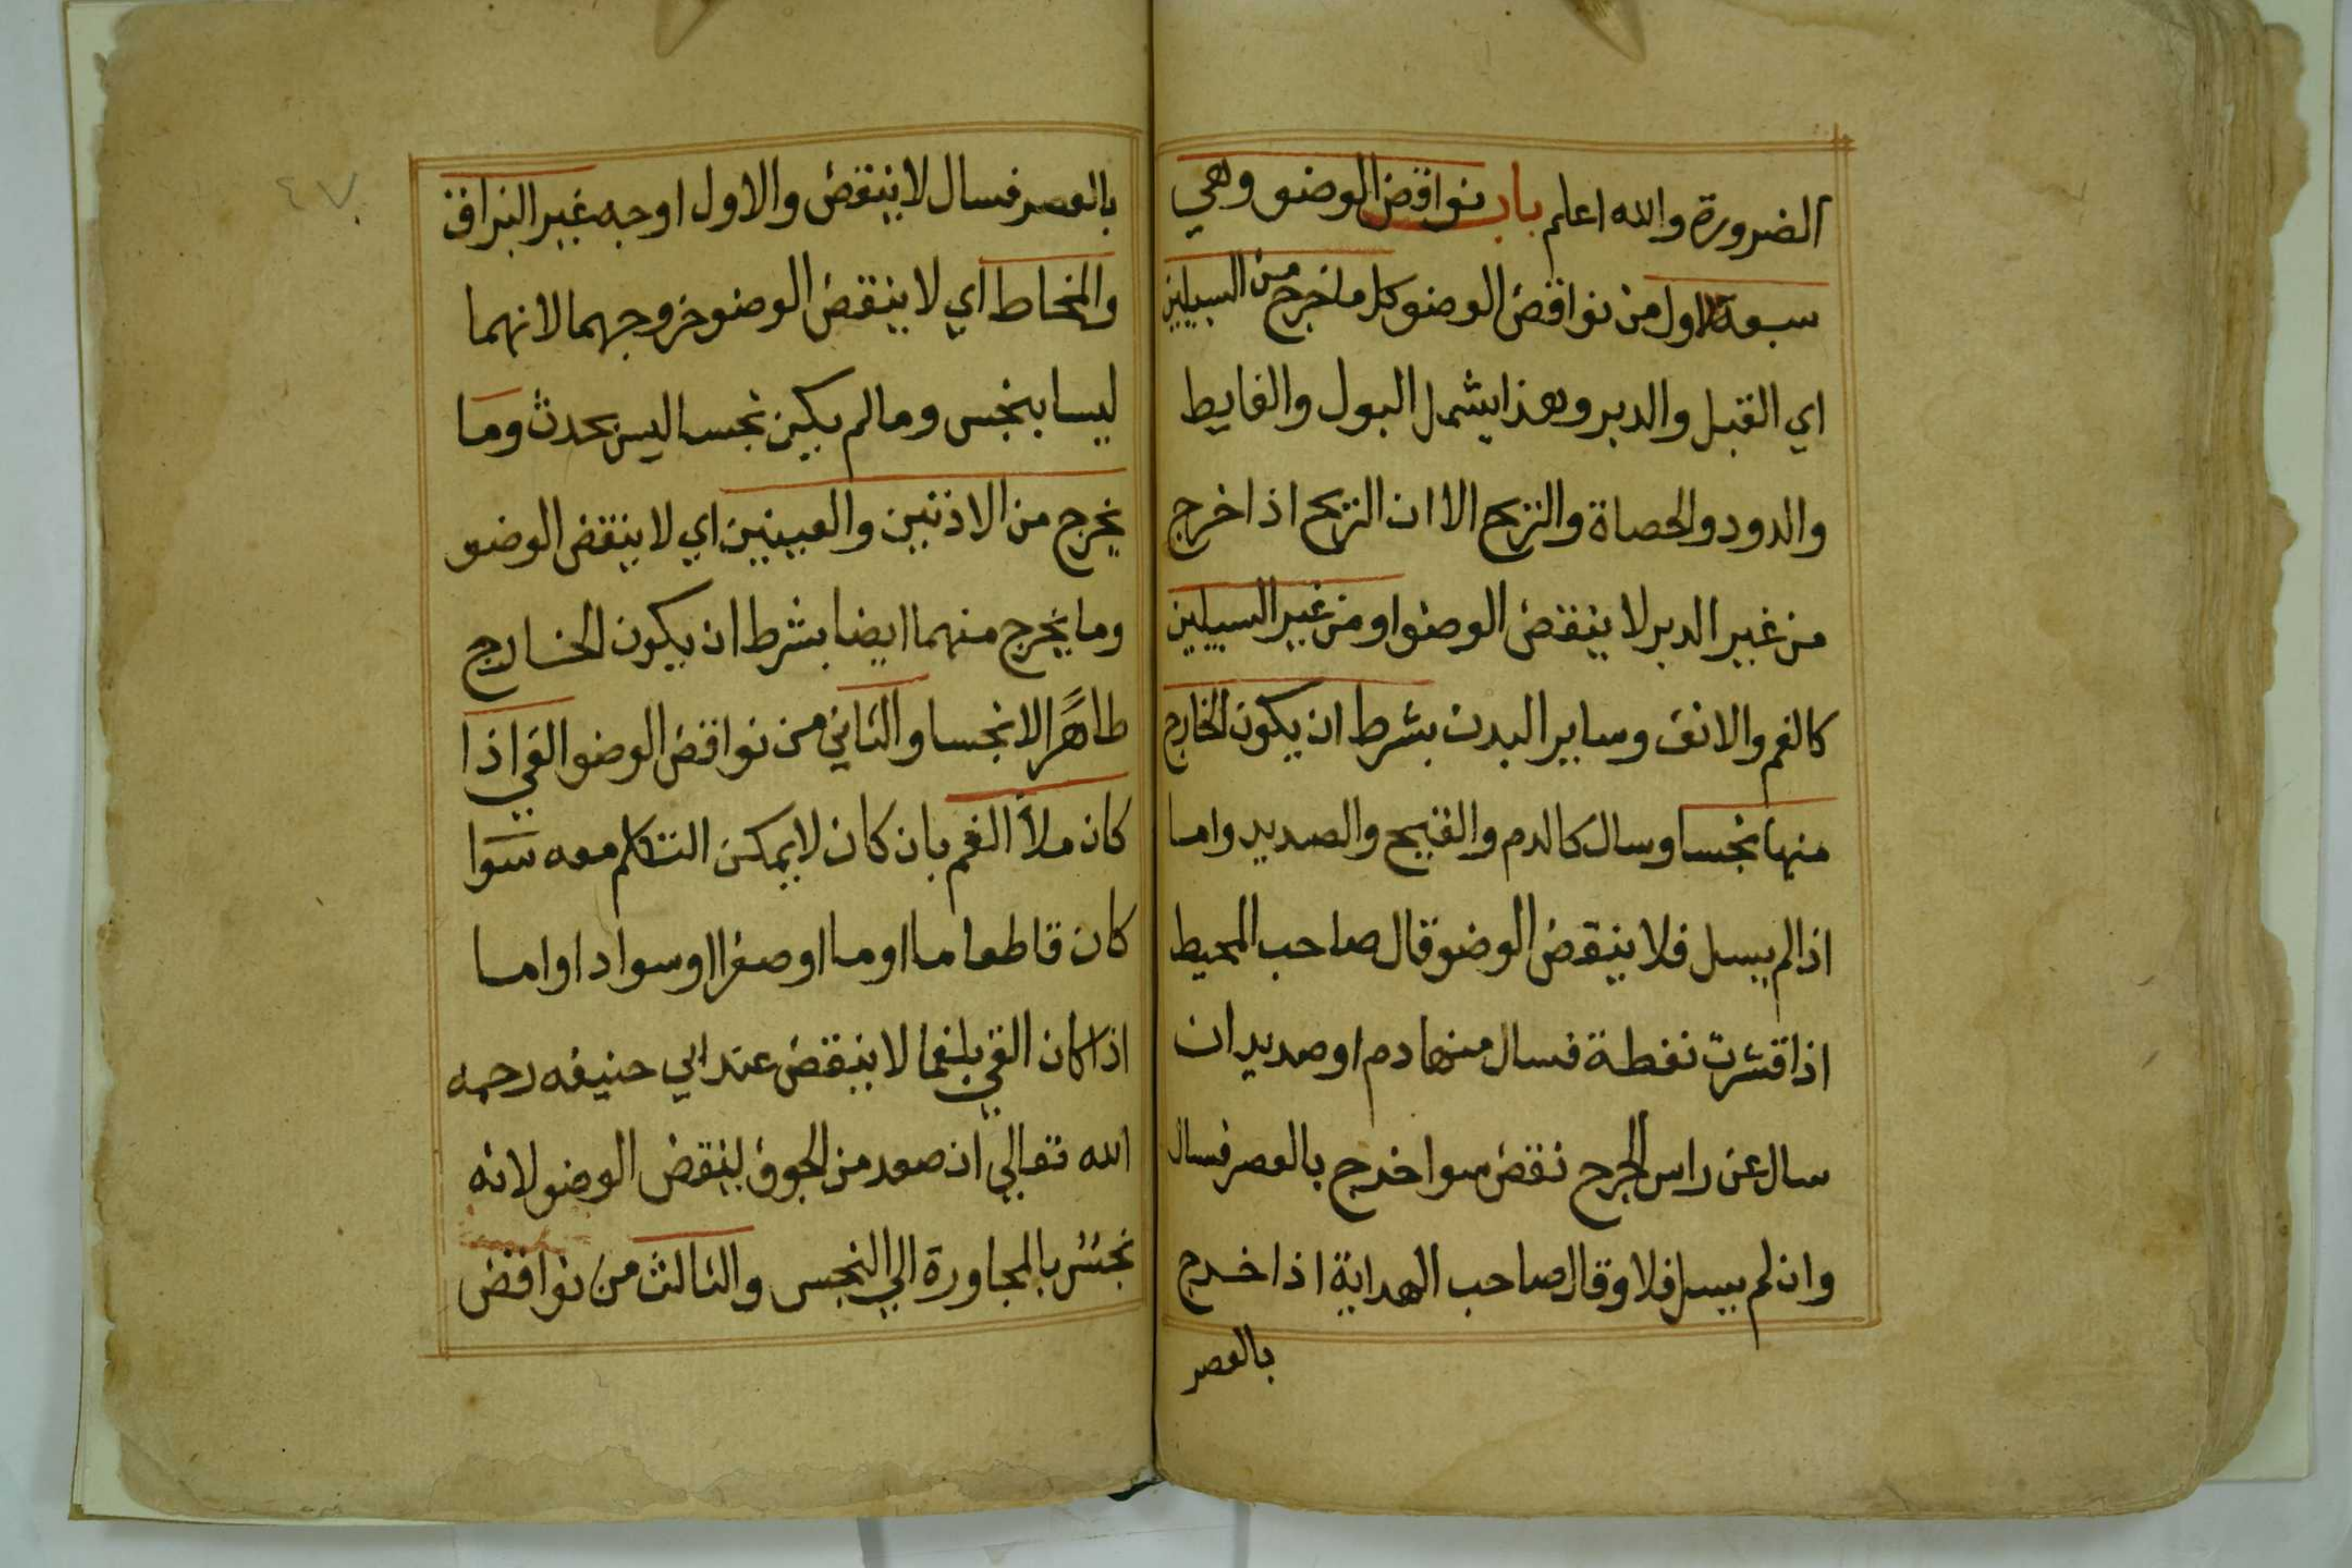 الضرورة والله اعلم باب نواقض الوضو وهي
سبعة الاول من نواقض الوضو كل ما خرج من السبيلين
اي القبل والدبر وهذا يشمل البول والغايط
والدود والحصاة والريح الا ان الريح اذا خرج
من غير الدبر لا ينقض الوضو او من غير السبيلين
كالفم والانف وساير البدن بشرط ان يكون الخارج
منها نجسا وسال كالدم والقيح والصديد واما
اذا لم يسل فلا ينقض الوضو قال صاحب المحيط
اذا قشرت نفطة فسال منها دم او صديد ان
سال عن راس الجرح نقض سوا خرج بالعصر فسال
وان لم يسل فلا وقال صاحب الهداية اذا خرج
بالعصر
بالعصر فسال لا ينقض والاول اوجه غير البزاق
والمخاط اي لا ينقض الوضو خروجهما لانهما
ليسا بنجس وما لم يكن نجسا ليس بحدث وما
يخرج من الاذنين والعينين اي لا ينقض الوضو
وما يخرج منهما ايضا بشرط ان يكون الخارج
طاهرًا لا نجسا والثاني من نواقض الوضو القي اذا
كان ملأ الفم بان كان لا يمكن التكلم معه سوا
كان قاطعا ما او ما او صفرا او سوادا واما
اذا كان القي بلغما لا ينقض عند ابي حنيفه رحمه
الله تعالي ان صعد من الجوف لينقض الوضو لانه
نجس بالمجاورة الي النجس والثالث من نواقض
٤٧